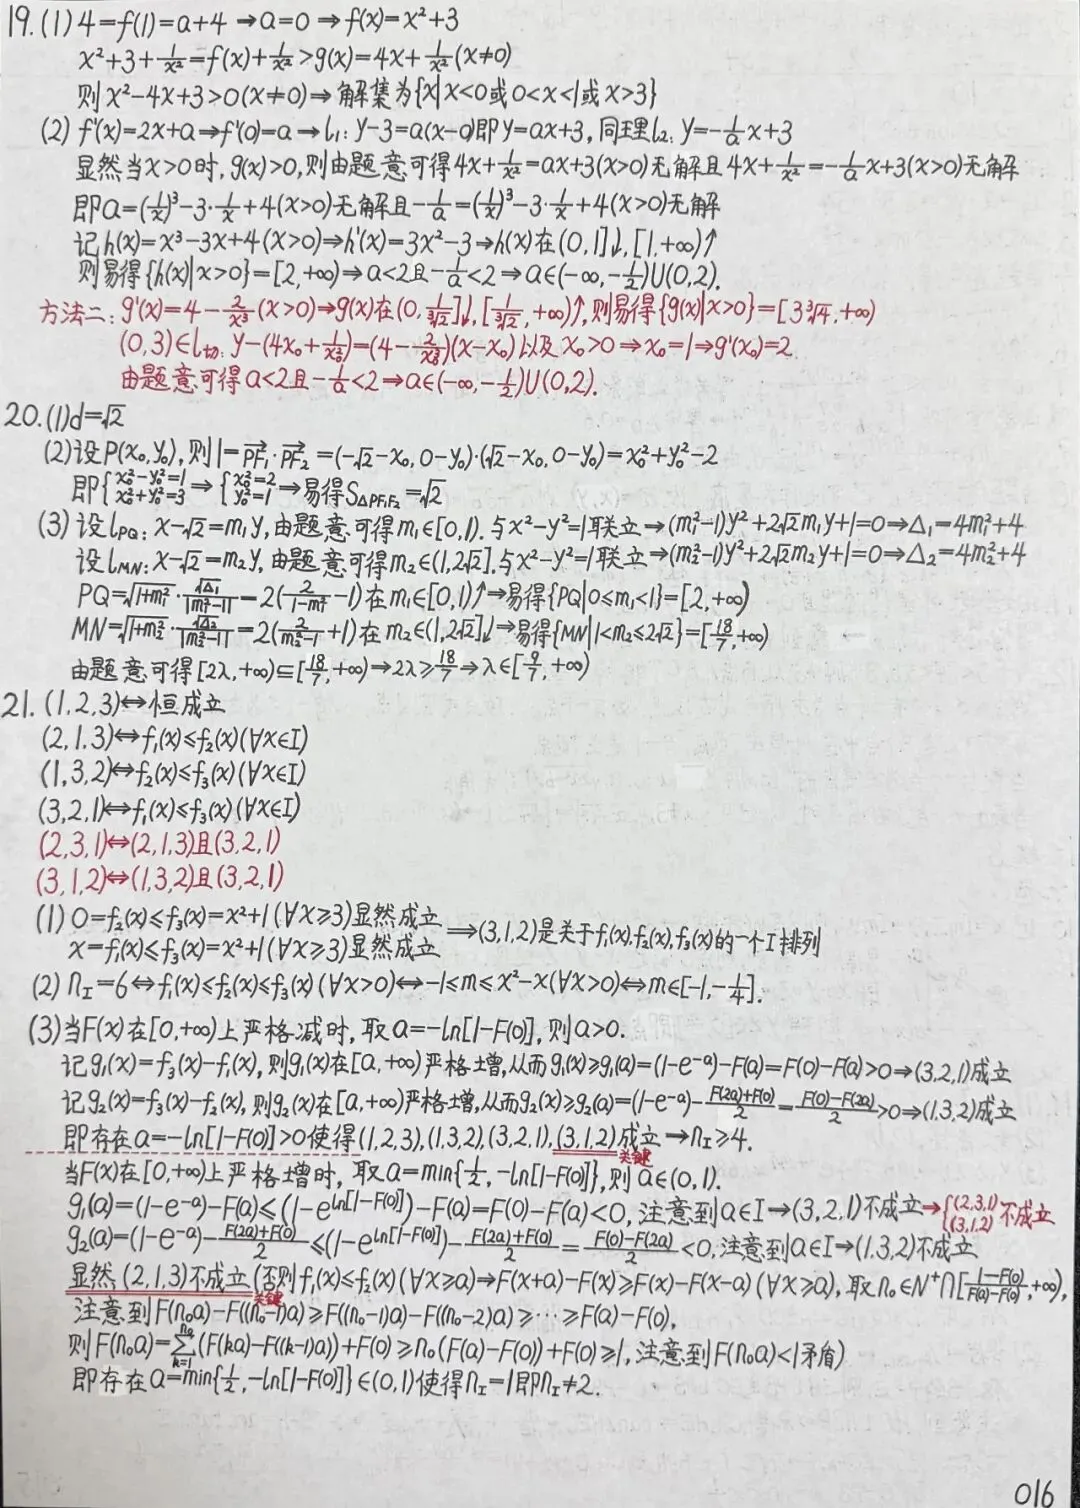 19. (1) 4=f(1)=a+4 →a=0 ⇒f(x)=x²+3
x²+3+1/x²=f(x)+1/x²>g(x)=4x+1/x²(x≠0)
则x²-4x+3>0(x≠0)⇒解集为{x|x<0或0<x<1或x>3}
(2) f'(x)=2x+a⇒f'(0)=a→l₁: y-3=a(x-0)即y=ax+3, 同理l₂: y=-1/a x+3
显然当x>0时, g(x)>0, 则由题意可得4x+1/x²=ax+3(x>0)无解且4x+1/x²=-1/a x+3(x>0)无解
即a=(1/x)³-3·1/x+4(x>0)无解且-1/a=(1/x)³-3·1/x+4(x>0)无解
记h(x)=x³-3x+4(x>0)⇒h'(x)=3x²-3⇒h(x)在(0,1]↓, [1,+∞)↑
则易得{h(x)|x>0}=[2,+∞)⇒a<2且-1/a<2⇒a∈(-∞,-1/2)∪(0,2).
方法二: g'(x)=4-2/x³(x>0)⇒g(x)在(0,1/∛2]↓, [1/∛2,+∞)↑, 则易得{g(x)|x>0}=[3∛4,+∞)
(0,3)∈l切: y-(4x₀+1/x₀²)=(4-2/x₀³)(x-x₀)以及x₀>0⇒x₀=1→g'(x₀)=2
由题意可得a<2且-1/a<2⇒a∈(-∞,-1/2)∪(0,2).
20. (1)d=√2
(2)设P(x₀,y₀), 则1=PF₁·PF₂=(-√2-x₀,0-y₀)·(√2-x₀,0-y₀)=x₀²+y₀²-2
即{x₀²-y₀²=1 x₀²+y₀²=3⇒{x₀²=2 y₀²=1→易得S△PF₁F₂=√2
(3) 设l_PQ: x-√2=m₁y, 由题意可得m₁∈[0,1). 与x²-y²=1联立→(m₁²-1)y²+2√2m₁y+1=0⇒Δ₁=4m₁²+4
设l_MN: x-√2=m₂y, 由题意可得m₂∈(1,2√2]. 与x²-y²=1联立→(m₂²-1)y²+2√2m₂y+1=0⇒Δ₂=4m₂²+4
PQ=√(1+m₁²)·√Δ₁/|m₁²-1|=2(2/(1-m₁²)-1)在m₁∈[0,1)↑⇒易得{PQ|0≤m₁<1}=[2,+∞)
MN=√(1+m₂²)·√Δ₂/|m₂²-1|=2(2/(m₂²-1)+1)在m₂∈(1,2√2]↓⇒易得{MN|1<m₂≤2√2}=[18/7,+∞)
由题意可得[2λ,+∞)⊆[18/7,+∞)→2λ≥18/7→λ∈[9/7,+∞)
21. (1,2,3)⇔恒成立
(2,1,3)⇔f₁(x)≤f₂(x)(∀x∈I)
(1,3,2)⇔f₂(x)≤f₃(x)(∀x∈I)
(3,2,1)⇔f₁(x)≤f₃(x)(∀x∈I)
(2,3,1)⇔(2,1,3)且(3,2,1)
(3,1,2)⇔(1,3,2)且(3,2,1)
(1) 0=f₂(x)≤f₃(x)=x²+1(∀x≥3)显然成立
x=f₁(x)≤f₃(x)=x²+1(∀x≥3)显然成立 ⟹(3,1,2)是关于f₁(x),f₂(x),f₃(x)的一个I排列
(2) n_I=6⇔f₁(x)≤f₂(x)≤f₃(x)(∀x>0)⇔-1≤m≤x²-x(∀x>0)⇔m∈[-1,-1/4].
(3)当F(x)在[0,+∞)上严格减时, 取a=-ln[1-F(0)], 则a>0.
记g₁(x)=f₃(x)-f₁(x), 则g₁(x)在[a,+∞)严格增, 从而g₁(x)≥g₁(a)=(1-e^-a)-F(a)=F(0)-F(a)>0⇒(3,2,1)成立
记g₂(x)=f₃(x)-f₂(x), 则g₂(x)在[a,+∞)严格增, 从而g₂(x)≥g₂(a)=(1-e^-a)-(F(2a)+F(0))/2=(F(0)-F(2a))/2>0⇒(1,3,2)成立
即存在a=-ln[1-F(0)]>0使得(1,2,3),(1,3,2),(3,2,1),(3,1,2)成立→n_I≥4.
关键
当F(x)在[0,+∞)上严格增时, 取a=min{1/2,-ln[1-F(0)]}, 则a∈(0,1).
g₁(a)=(1-e^-a)-F(a)≤(1-e^ln[1-F(0)])-F(a)=F(0)-F(a)<0, 注意到a∈I→(3,2,1)不成立→{(2,3,1) (3,1,2)不成立
g₂(a)=(1-e^-a)-(F(2a)+F(0))/2≤(1-e^ln[1-F(0)])-(F(2a)+F(0))/2=(F(0)-F(2a))/2<0, 注意到a∈I→(1,3,2)不成立
显然(2,1,3)不成立(否则f₁(x)≤f₂(x)(∀x≥a)⇒F(x+a)-F(x)≥F(x)-F(x-a)(∀x≥a), 取n₀∈N⁺∩[(1-F(0))/(F(a)-F(0)),+∞),
关键
注意到F(n₀a)-F((n₀-1)a)≥F((n₀-1)a)-F((n₀-2)a)≥…≥F(a)-F(0),
则F(n₀a)=∑_{k=1}^{n₀}(F(ka)-F((k-1)a))+F(0)≥n₀(F(a)-F(0))+F(0)≥1, 注意到F(n₀a)<1矛盾)
即存在a=min{1/2,-ln[1-F(0)]}∈(0,1)使得n_I=1即n_I≠2.
016